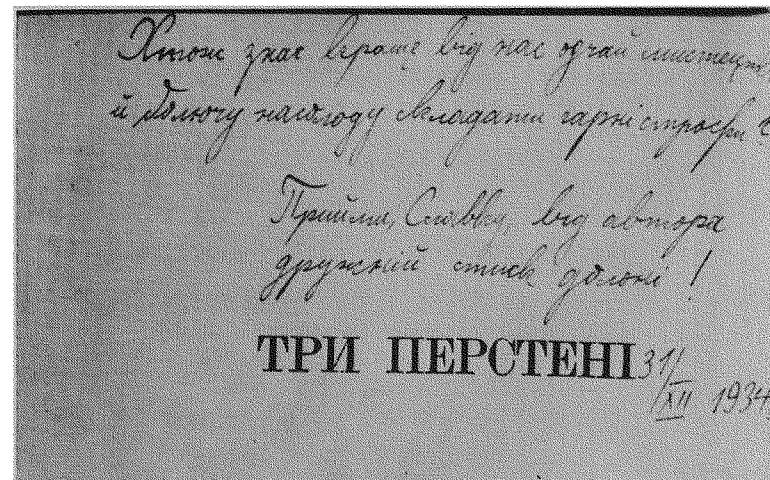 Хтож знає краще від нас одчай мистецтв
й болючу насолоду складати гарні строфи
Прийми, Славку, від автора
дружній стиск долоні!
ТРИ ПЕРСТЕНІ 31/XII 1934